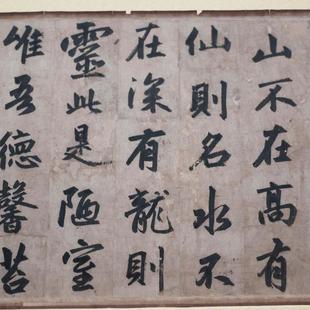 山不在高有
仙則名水不
在深有龍則
靈此是陋室
惟吾德馨苔